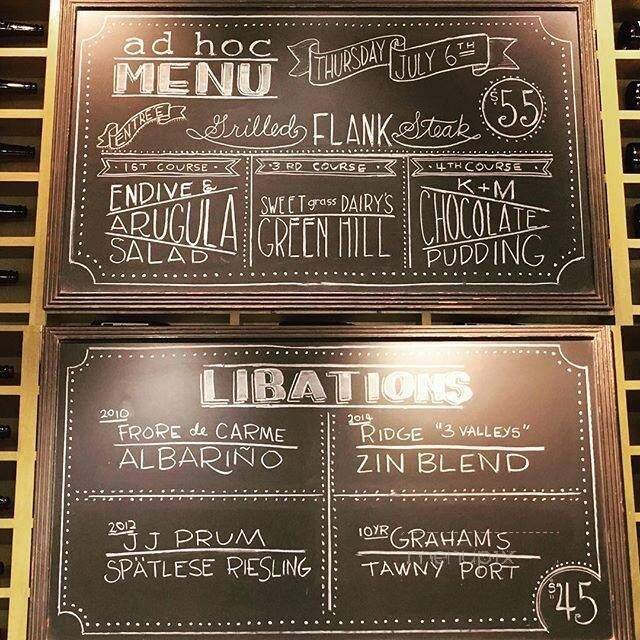 ad hoc
MENU
THURSDAY JULY 6TH
ENTREE
Grilled FLANK Steak
$55
1ST COURSE
ENDIVE &
ARUGULA
SALAD
3RD COURSE
SWEET grass DAIRY'S
GREEN HILL
4TH COURSE
K+M
CHOCOLATE
PUDDING
LIBATIONS
2010
FRORE de CARME
ALBARIÑO
2014
RIDGE "3 VALLEYS"
ZIN BLEND
2012
JJ PRUM
SPÄTLESE RIESLING
10YR GRAHAMS
TAWNY PORT
menupix
$45